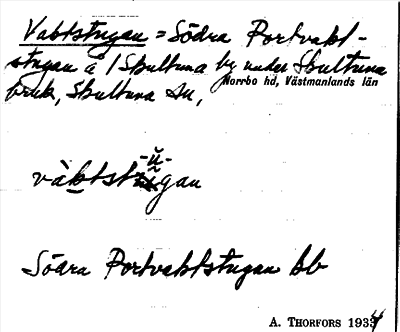 Vaktstugan = Södra Portvakt-
stugan å 1 Skultuna by under Skultuna
Norrbo hd, Västmanlands län
bruk, Skultuna sn,
-ŭ-
vàktstŭgan
Södra Portvaktstugan bb
A. THORFORS 1934